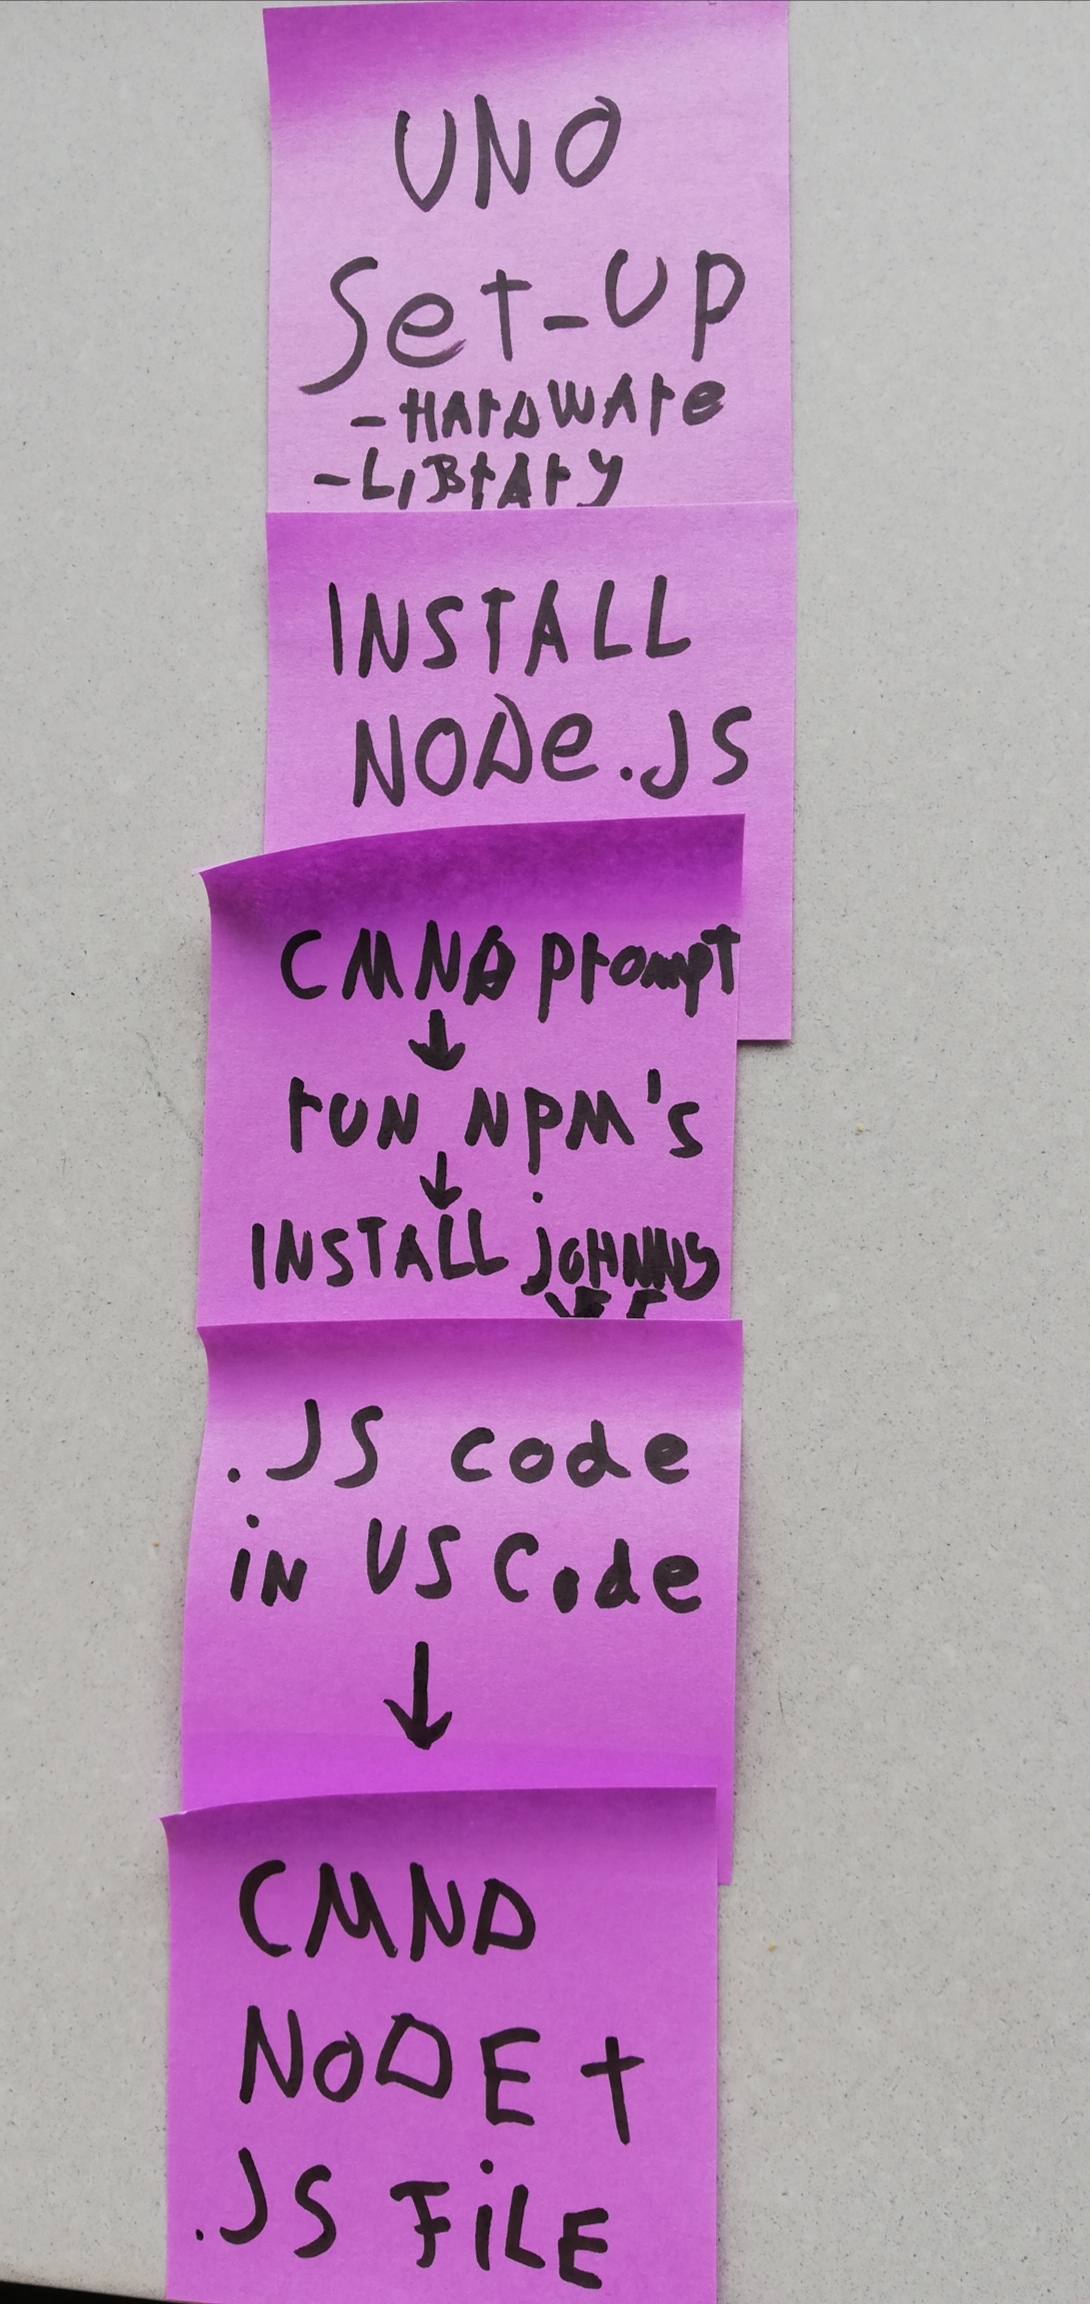 UNO
Set-UP
-HArDWAre
-LIBrArY
INSTALL
NODe.JS
CMND prompt
↓
rUN NPM's
↓
INSTALL JOHNNY
.JS code
iN VS Code
↓
CMND
NODE +
.JS FiLE